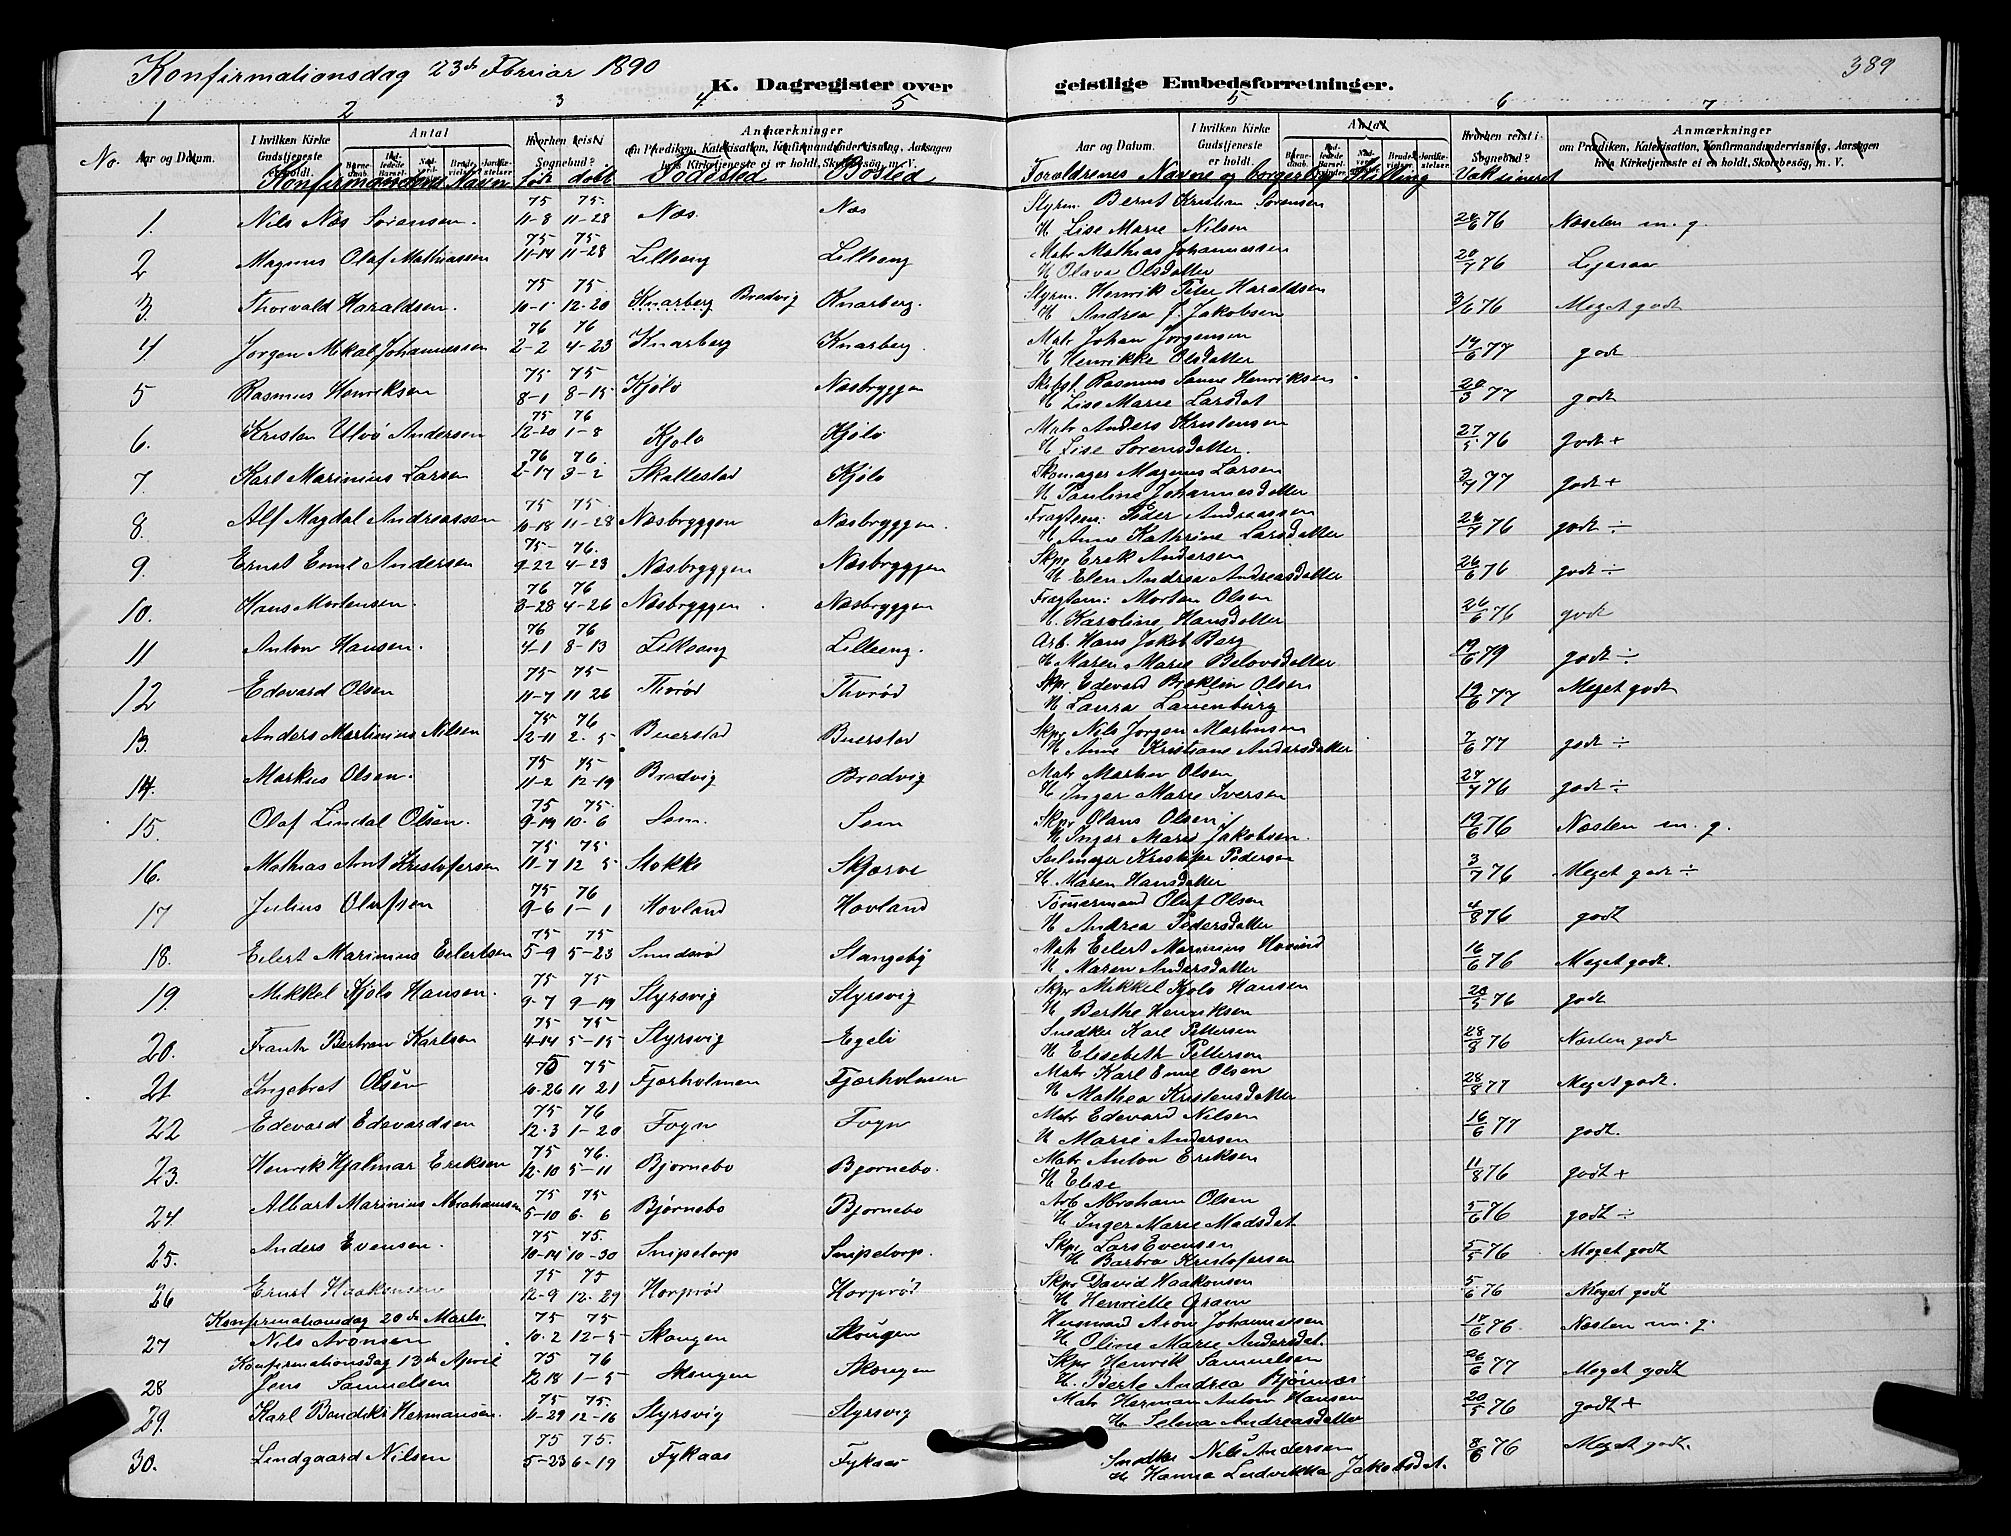 Konfirmationsdag 23de Februar 1890
389
K. Dagregister over geistlige Embedsforretninger.
1 2 3 4 5 5 6 7
No. Aar og Datum. I hvilken Kirke Gudstjeneste er holdt. Antal Hvorhen reist i Sognebud? Anmærkninger om Prædiken, Katekisation, Konfirmandundervisning, Aarsagen hvis Kirketjeneste ei er holdt, Skolebesög, m. V.
Aar og Datum. I hvilken Kirke Gudstjeneste er holdt. Antal Hvorhen reist i Sognebud? Anmærkninger om Prædiken, Katekisation, Konfirmandundervisning, Aarsagen hvis Kirketjeneste ei er holdt, Skolebesög, m. V.
Konfirmandens Navn født døbt Fødested Bosted Forældrenes Navne og borgerlig Stilling Vaksineret
1. Nils Næs Sørensen. 75 11-8 75 11-28 Næs. Næs Styrm. Bernt Kristian Sørensen H Lise Marie Nilsen 76 Næsten m. g.
2 Magnus Olaf Mathiassen 75 11-14 75 11-28 Lilleeng Lilleeng Matr Mathias Johannessen H Olava Olsdatter 20/7 76
3. Thorvald Haraldsen. 75 10-1 75 12-20 Knarberg Bredvig Knarberg. Styrm. Henrik Peter Haraldsen H Andrea J. Jakobsen 3/6 76 Meget godt
4 Jørgen Mikal Johannessen 76 2-2 76 4-23 Knarberg Knarberg. Matr Johan Jørgensen H Henrikke Olsdatter 14/6 77 godt
5 Rasmus Henriksen 75 8-1 75 8-15 Kjølø Næsbryggen Skibst. Rasmus Sanne Henriksen H Lise Marie Larsdat 20/3 77 godt
6. Kristen Ulvø Andersen 75 12-20 76 1-8 Kjølø Kjølø Matr Anders Kristensen H Lise Sørensdatter. 27/5 76 godt +
7. Karl Marinius Larsen 76 2-17 76 3-2 Skallestad Kjølø Skomager Magnus Larsen H Pauline Johannesdatter 3/7 77 godt +
8. Alf Magdal Andreassen 75 10-18 75 11-28 Næsbryggen Næsbryggen. Fragtem: Peder Andreassen H Anne Kathrine Larsdatter 24/7 76 godt ÷
9. Ernst Emil Andersen 75 9-22 76 4-23 Næsbryggen Næsbryggen Skpr Erik Andersen H Elen Andrea Andreasdatter 26/6 76 godt ÷
10. Hans Mortensen. 76 3-28 76 4-26 Næsbryggen Næsbryggen Fragtem: Morten Olsen H. Karoline Hansdatter 26/6 76 godt
11 Anton Hansen. 76 4-1 76 8-13 Lilleeng Lilleeng. Arb. Hans Jakob Berg H Maren Marie Belovsdatter 19/6 79 godt ÷
12 Edevard Olsen 75 11-7 75 11 26 Thorød Thorød Skpr Edevard Broklin Olsen H Laura Lauenburg 19/6 77 Meget godt
13. Anders Martinius Nilsen 75 12-11 76 2-5 Buerstad Buerstad Skpr Nils Jørgen Martinsen H Anne Kristiane Andersdatter 7/6 77 godt ÷
14. Markus Olsen. 75 11-2 75 12-19 Bredvig Bredvig Matr Martin Olsen H Inger Marie Iversen 27/7 76 godt ÷
15. Olaf Lindal Olsen. 75 9-19 75 10-6 Sem. Sem Skpr Olaus Olsen. H Inger Marie Jakobsen. 19/6 76 Næsten m. g.
16. Mathias Arnt Kristofersen 75 11-7 75 12 5 Stokke Skjærve Seilmager Kristofer Pedersen H. Maren Hansdatter 3/7 76 Meget godt ÷
17 Julius Olufsen 75 9-6 76 1-1 Hovland Hovland Tømermand Oluf Olsen H Andrea Pedersdatter 4/8 76 godt
18. Eilert Marinius Eilertsen 75 5-9 75 5-23 Sundrød Stangeby Matr Eilert Marinius H Maren Andersdatter 16/6 76 Meget godt.
19. Mikkel Kjølø Hansen. 75 9-7 75 9-19 Styrsvig Styrsvig Skpr Mikkel Kjølø Hansen H Berthe Henriksen 20/5 76 godt
20. Frantz Bertran Karlsen 75 4-14 75 5-15 Styrsvig Egeli Snedker Karl Pettersen H Elisebeth Pettersen 28/8 76 Næsten godt
21 Ingebret Olsen 75 10-26 75 11 21 Fjærholmen Fjærholmen Matr Karl Emil Olsen H Mathea Kristensdatter 28/8 77 Meget godt.
22 Edevard Edevardsen 75 12-3 76 1-20 Føyn Føyn Matr Edevard Nilsen H Marie Andersen 16/6 77 godt.
23. Henrik Hjalmar Eriksen 75 12-10 76. 5-11 Bjørnebo Bjørnebo. Matr Anton Eriksen H Elise 11/8 76 godt +
24. Albart Marinius Abrahamsen 75 5-10 75 6-6 Bjørnebo Bjørnebo Arb Abraham Olsen H Inger Marie Madsdat 5/6 76 godt ÷
25. Anders Evensen. 75 10-14 75. 10-30 Snipetorp Snipetorp. Skpr Lars Evensen H Barbra Kristofersen 5/5 76 Meget godt
26 Ernst Haakonsen 75 12-9 75 12-29 Horprød Horprød Skpr David Haakonsen H Henriette Gram 5/6 76 Meget godt
Konfirmationsdag 20de Marts.
27 Nils Aronsen 75 10-2 75 12-5 Skougen Skougen Husmand Aron Johannessen H Oline Marie Andersdat. 17/6 76. Næsten m. g.
Konfirmationsdag 13de April
28 Jens Samuelsen 75 12 18 76 1-5 Skougen Skougen Skpr Henrik Samuelsen H. Berte Andrea Bjønnæs. 26/6 77 Meget godt
29. Karl Bendiks Hermansen. 75 11-29 75. 12-16 Styrsvig Styrsvig Matr Herman Anton Hansen H Selma Andreasdatter 20/5 76 godt +
30. Lindgaard Nilsen 75 5-23 75. 6-19 Fykaas Fykaas Snedker Nils Andersen H Hanna Ludvikka Jakobsdat. 8/6 76 Meget godt.